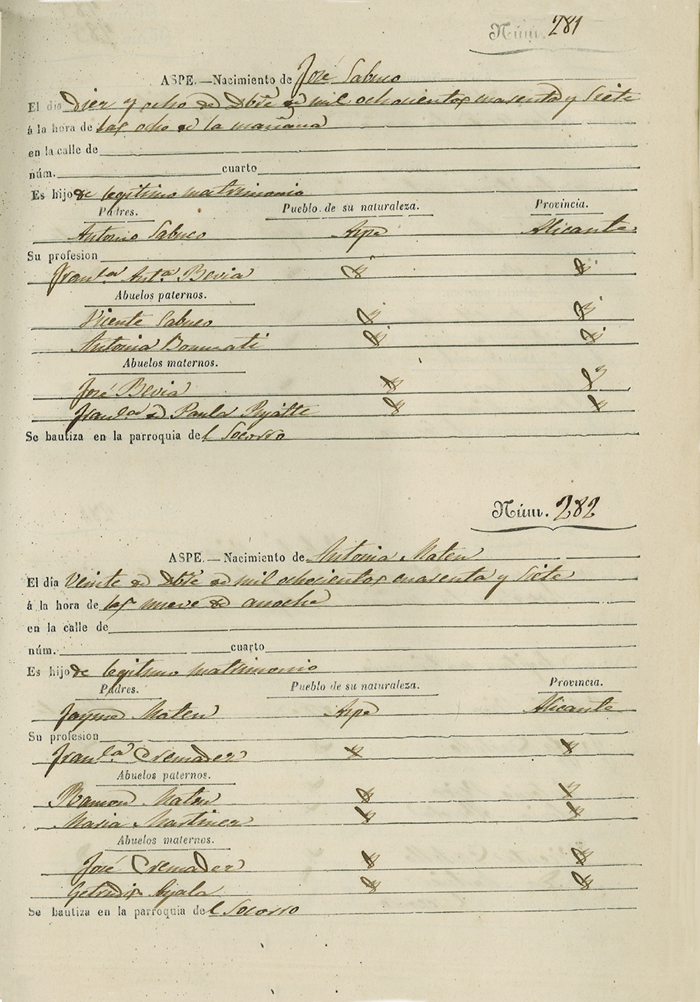 Núm. 281
ASPE.—Nacimiento de José Sabuco
El día Diez y ocho de Dbre de mil ochocientos cuarenta y siete
á la hora de las ocho de la mañana
en la calle de
núm. cuarto
Es hijo de legitimo matrimonio
Padres. Pueblo de su naturaleza. Provincia.
Antonio Sabuco Aspe Alicante
Su profesion
Franca Anta Bevia
Abuelos paternos.
Vicente Sabuco
Antonia Bonmati
Abuelos maternos.
José Bevia
Franca de Paula
Se bautiza en la parroquia del Socorro
Núm. 282
ASPE.—Nacimiento de Antonia Maten
El día Veinte de Dbre de mil ochocientos cuarenta y siete
á la hora de las nueve de anoche
en la calle de
núm. cuarto
Es hijo de legitimo matrimonio
Padres. Pueblo de su naturaleza. Provincia.
Jayme Maten Aspe Alicante
Su profesion
Franca Cremades
Abuelos paternos.
Ramon Maten
Maria Martinez
Abuelos maternos.
José Cremades
Getrudis Ayala
Se bautiza en la parroquia del Socorro